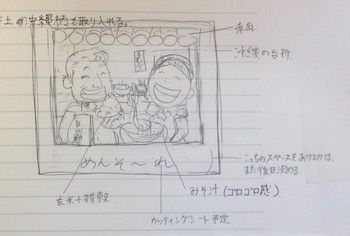 沖縄柄を取り入れる。
赤瓦
沖縄の台所
めんそ〜れ
こっちのスペースをあけるかは、
また後日決める
玄米+雑穀
みそ汁(ゴロゴロ感)
カッティングシート予定